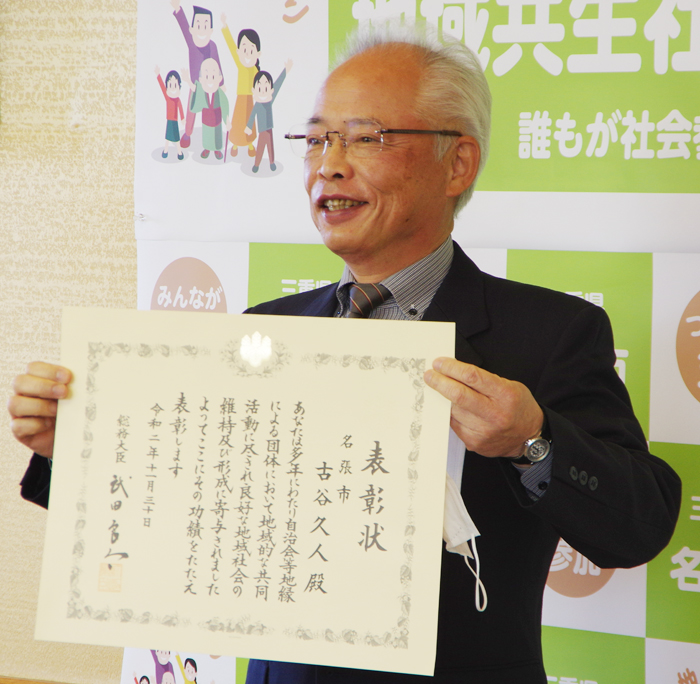 地域共生社
誰もが社会参
みんなが
三重県
表彰状
名張市
古谷久人殿
あなたは多年にわたり自治会等地縁
による団体において地域的な共同
活動に尽され良好な地域社会の
維持及び形成に寄与されました
よってここにその功績をたたえ
表彰します
令和二年十一月三十日
総務大臣 武田良太
参加
三
名